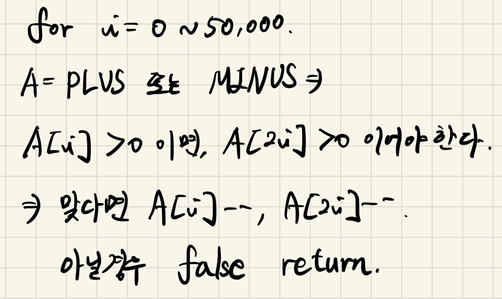 for i = 0 ~ 50,000.
A = PLUS 또는 MINUS ⇒
A[i] >0 이면, A[2i] >0 이어야 한다.
⇒ 맞다면 A[i]--, A[2i]--.
아닐경우 false return.